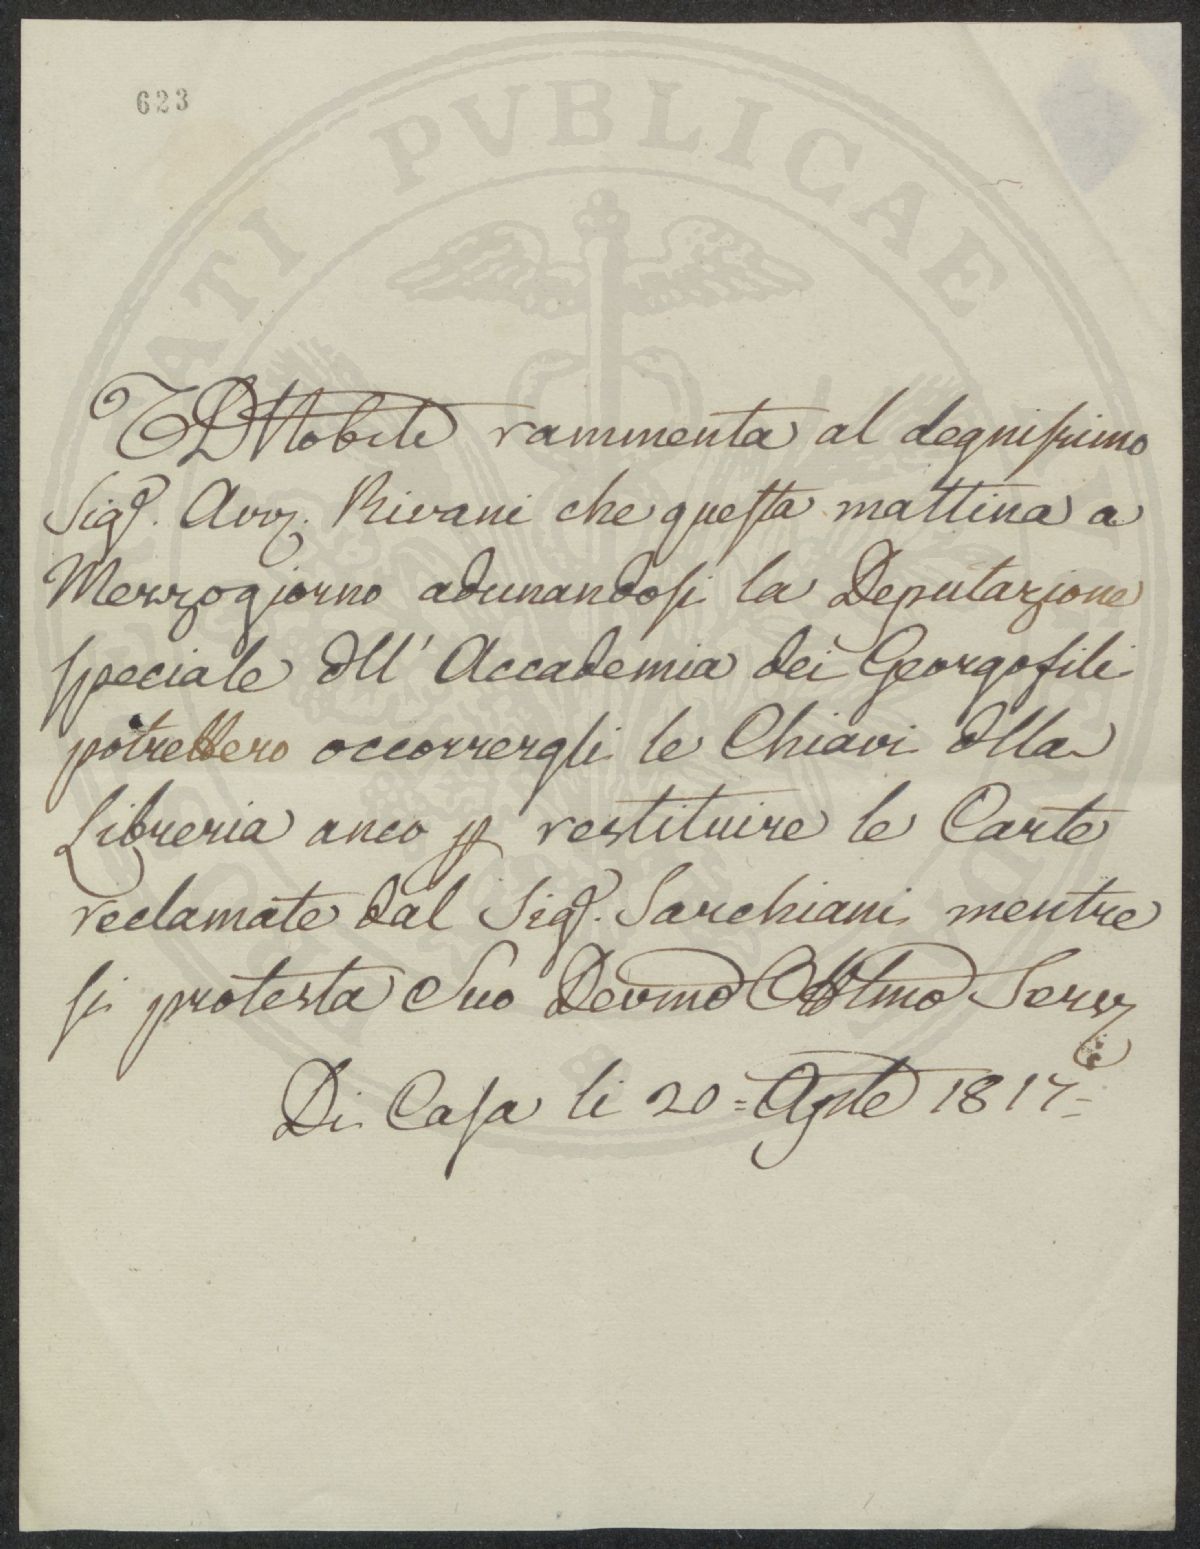 623
PVBLICAE
T D Nobili rammenta al degnissimo
Sigr. Avv. Rivani che questa mattina a
Mezzogiorno adunandosi la Deputazione
speciale dll' Accademia dei Georgofili
potrebbero occorrergli le Chiavi dlla
Libreria anco p restituire le Carte
reclamate dal Sigr. Sarchiani mentre
si protesta Suo Devmo Obblmo Serv
Di Casa li 20 = Agste 1817 =